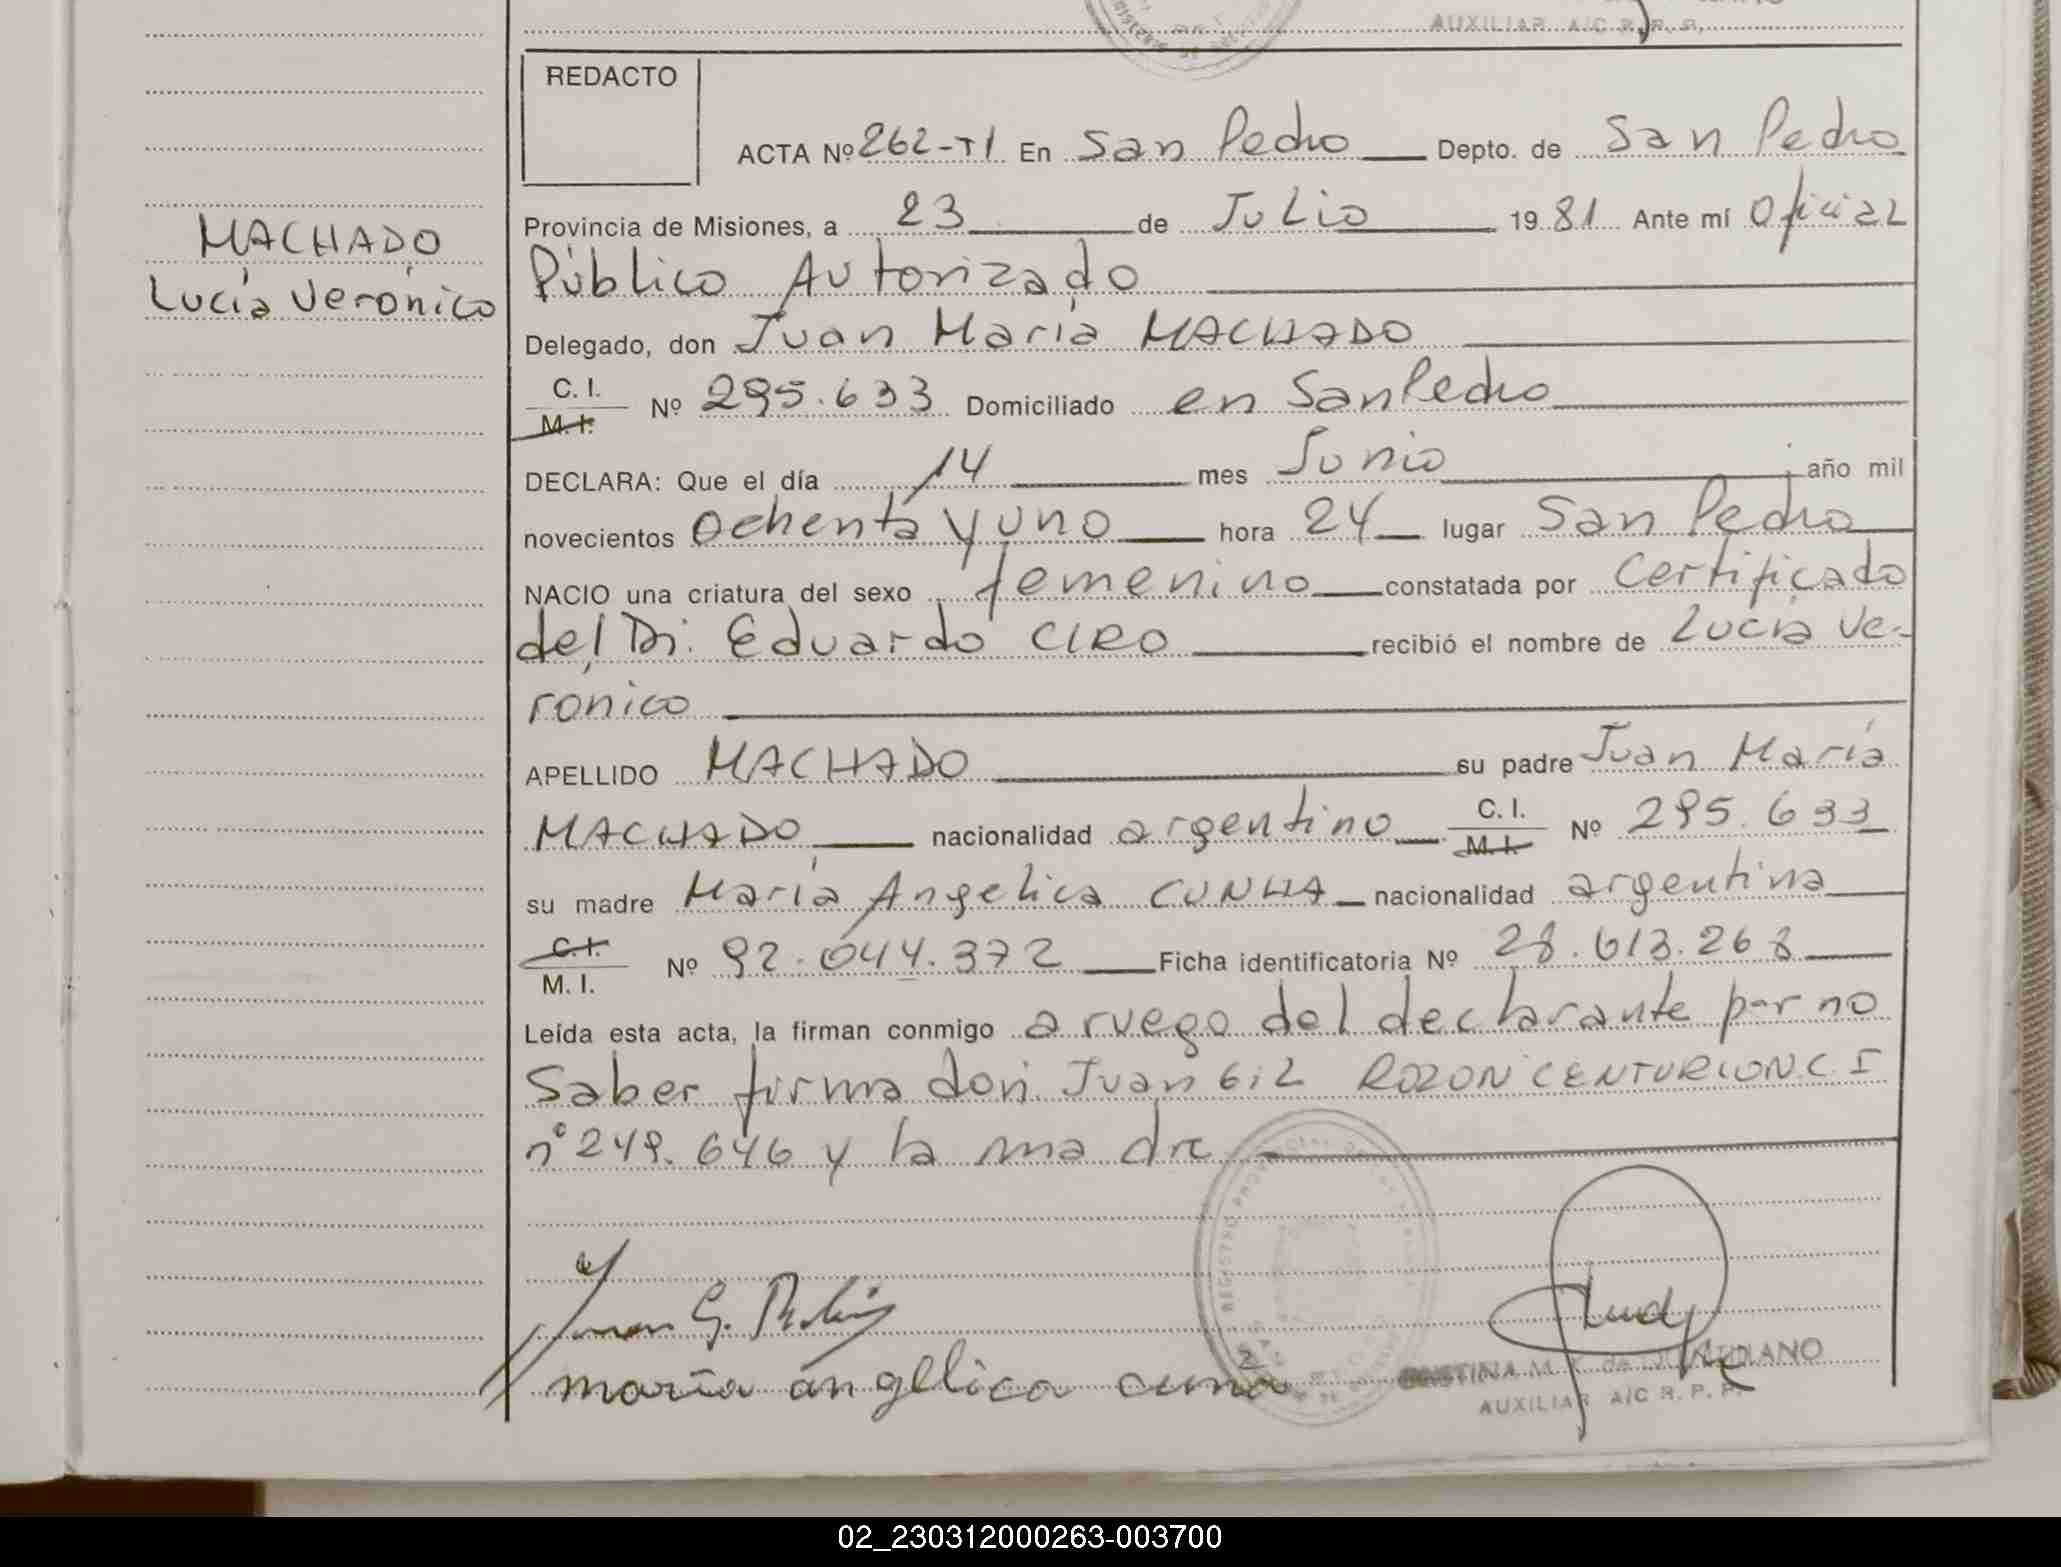 AUXILIAR A/C R.P.P.
REDACTO
ACTA Nº 262-T1 En San Pedro Depto. de San Pedro
MACHADO
Lucía Veronica
Provincia de Misiones, a 23 de Julio 1981 Ante mí Oficial
Público Autorizado
Delegado, don Juan María MACHADO
C. I.
M. I.
Nº 295.633 Domiciliado en San Pedro
DECLARA: Que el día 14 mes Junio año mil
novecientos ochenta y uno hora 24 lugar San Pedro
NACIO una criatura del sexo femenino constatada por Certificado
del Dr. Eduardo CIRO recibió el nombre de Lucía Ve-
ronica
APELLIDO MACHADO su padre Juan María
MACHADO nacionalidad argentino C. I. M. I. Nº 295.633
su madre María Angelica CUNHA nacionalidad argentina
C. I.
M. I.
Nº 92.044.372 Ficha identificatoria Nº 28.613.268
Leída esta acta, la firman conmigo a ruego del declarante por no
Saber firma don Juan Gil ROZON CENTURION C.I
nº 249.646 y la madre
maría angélica cuna
CRISTINA M. de
AUXILIAR A/C R.P.P.
02_230312000263-003700